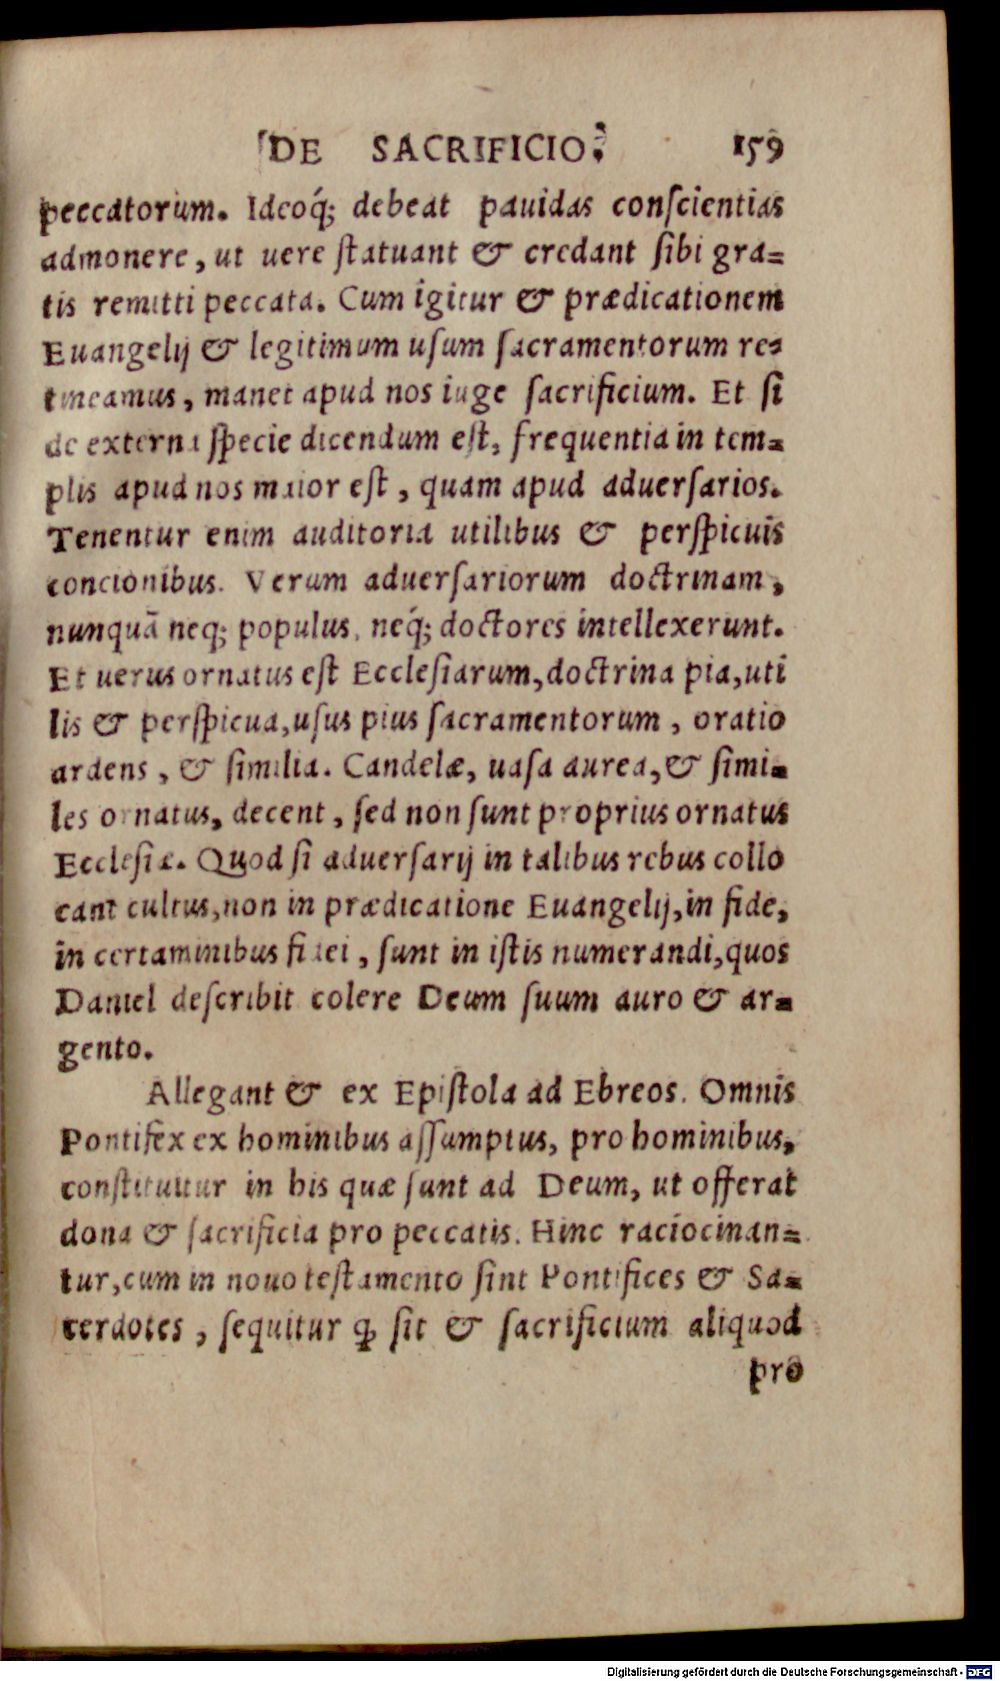 DE SACRIFICIO. 159
peccatorum. Ideoq́; debeat pauidas conſcientias
admonere, ut uere ſtatuant & credant ſibi gra=
tis remitti peccata. Cum igitur & prædicationem
Euangelij & legitimum uſum ſacramentorum re=
tineamus, manet apud nos iuge ſacrificium. Et ſi
de externa ſpecie dicendum eſt, frequentia in tem=
plis apud nos maior eſt, quam apud aduerſarios.
Tenentur enim auditoria utilibus & perſpicuis
concionibus. Verum aduerſariorum doctrinam,
nunquā neq; populus, neq́; doctores intellexerunt.
Et uerus ornatus eſt Eccleſiarum, doctrina pia, uti
lis & perſpicua, uſus pius ſacramentorum, oratio
ardens, & ſimilia. Candelæ, uaſa aurea, & ſimi=
les ornatus, decent, ſed non ſunt proprius ornatus
Eccleſiæ. Quod ſi aduerſarij in talibus rebus collo
cant cultus, non in prædicatione Euangelij, in fide,
in certaminibus fidei, ſunt in iſtis numerandi, quos
Daniel deſcribit colere Deum ſuum auro & ar=
gento.
Allegant & ex Epiſtola ad Ebreos. Omnis
Pontifex ex hominibus aſſumptus, pro hominibus,
conſtituitur in his quæ ſunt ad Deum, ut offerat
dona & ſacrificia pro peccatis. Hinc raciocinan=
tur, cum in nouo teſtamento ſint Pontifices & Sa=
cerdotes, ſequitur ꝙ ſit & ſacrificium aliquod
pro
Digitalisierung gefördert durch die Deutsche Forschungsgemeinschaft - DFG